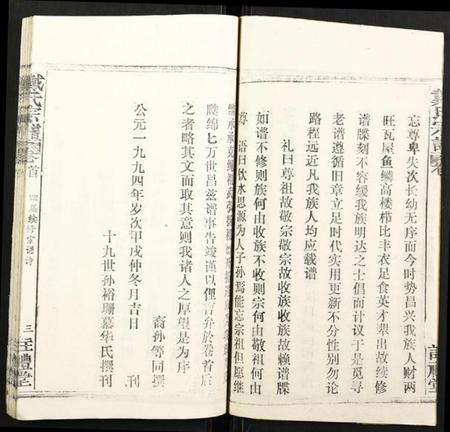 忘尊卑失次长幼无序而今时势昌兴我族人财两
旺瓦屋鱼鳞高楼栉比丰衣足食英才辈出故续修
谱牒刻不容缓我族明达之士倡而计议于是觅寻
老谱遵循旧章立足时代实用更新不分性别勿论
路程远近凡我族人均应载谱
礼曰尊祖故敬宗敬宗故收族收族故赖谱牒
如谱不修则族何由收族不收则宗何由敬祖何由
尊 语曰饮水思源为人子孙焉能忘宗祖但愿继
瓞绵七万世昌兹谱事告竣谨以俚言弁於卷首后
之者略其文而取其意则我诸人之厚望是为序
裔孙等同撰
公元一九九四年岁次甲戌仲冬月吉日 刊
十九世孙裕珊慕华氏撰刊
戴氏宗谱 卷首 四届续修宗谱序 三 注礼堂